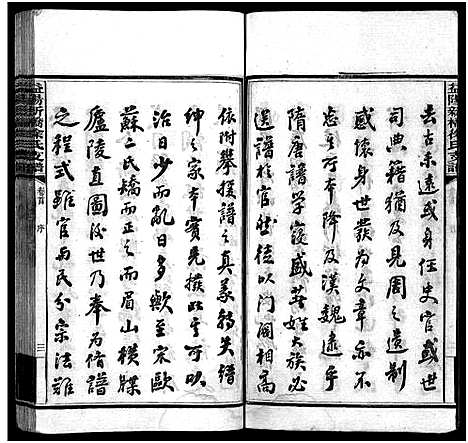 益陽新橋徐氏支譜
去古未遠或身任史官或世
司典籍猶及見周之遺制
感懷身世發為文章亦不
忘其所本降及漢魏遠乎
隋唐譜學寖盛其姓大族必
選譜於世徒以門閥相高
依附攀援譜之真義稍失縉
紳之家本實先撥以其可以
治日少而亂日多歟至宋歐
蘇二氏矯而眉山橫牒
廬陵直圖後世乃奉為脩譜
之程式雖官與民分宗法雖
益陽新橋徐氏支譜
卷首
序
三